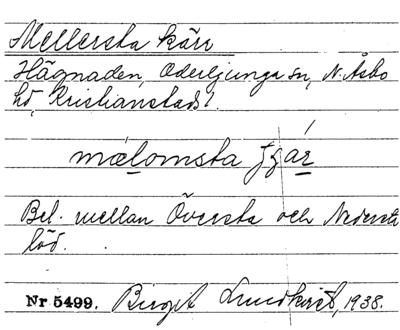 Mellersta kärr
Hägnaden, Oderljunga sn, N. Åsbo
hd, Kristianstads l.
mælomsta
Bel. mellan Översta och Nedersta
löd.
Nr 5499. Birgit Lundkvist, 1938.